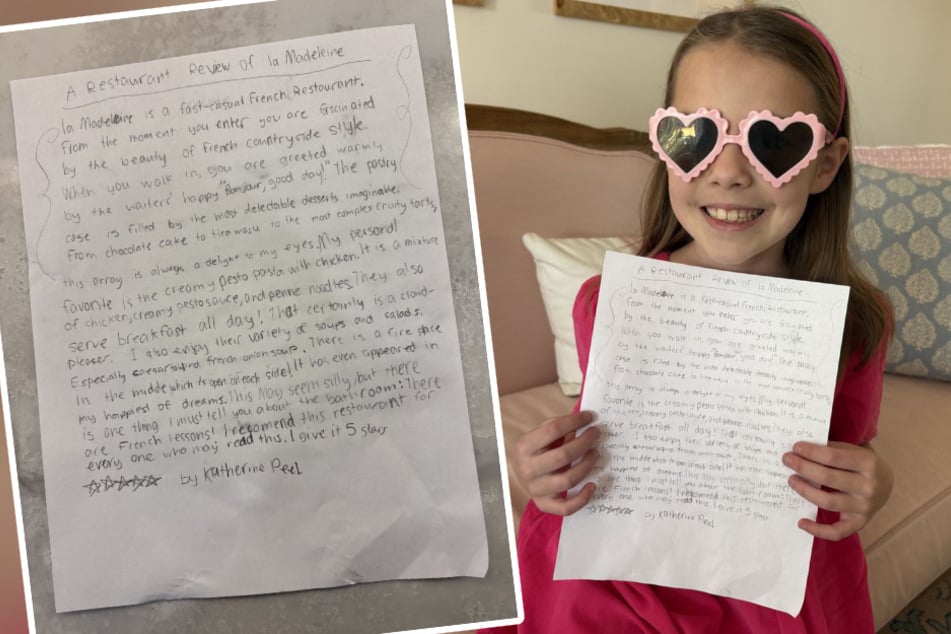 A Restaurant Review Of la Madeleine
la Madeleine is a fast-casual French Restaurant.
From the moment you enter you are fascinated
by the beauty of French countryside style.
When you walk in, you are greeted warmly
by the waiters' happy "Bonjour, good day." The pastry
case is filled by the most delectable desserts imaginable.
From chocolate cake to tiramasu to the most complex fruity tarts,
this array is always a delight to my eyes. My personal
favorite is the creamy pesto pasta with chicken. It is a mixture
of chicken, creamy pesto sauce, and penne noodles. They also
serve breakfast all day! That certainly is a crowd-
pleaser. I also enjoy their variety of soups and salads.
Especially and french onion soup. There is a fire place
in the midde which open each side! It has even appeared in
my happiest of dreams. This may seem silly, but there
is one thing I must tell you about the bathroom: There
are French lessons! I recomend this restaurant for
every one who may read this. I give it 5 stars
☆☆☆☆☆ by Katherine Peel
A Restaurant Review Of la Madeleine
la Madeleine is a fast-casual French Restaurant.
From the moment you enter you are fascinated
by the beauty of French countryside style.
When you walk in, you are greeted warmly
by Katherine Peel